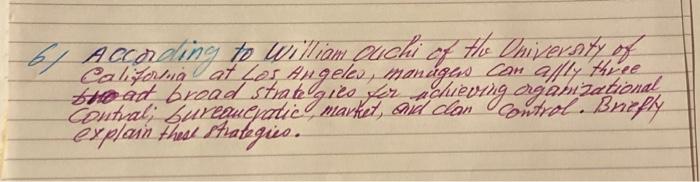 6/ According to William Ouchi of the University of
California at Los Angeles, managers can apply three
broad strategies for achieving organizational
control; bureaucratic, market, and clan control. Briefly
explain these strategies.